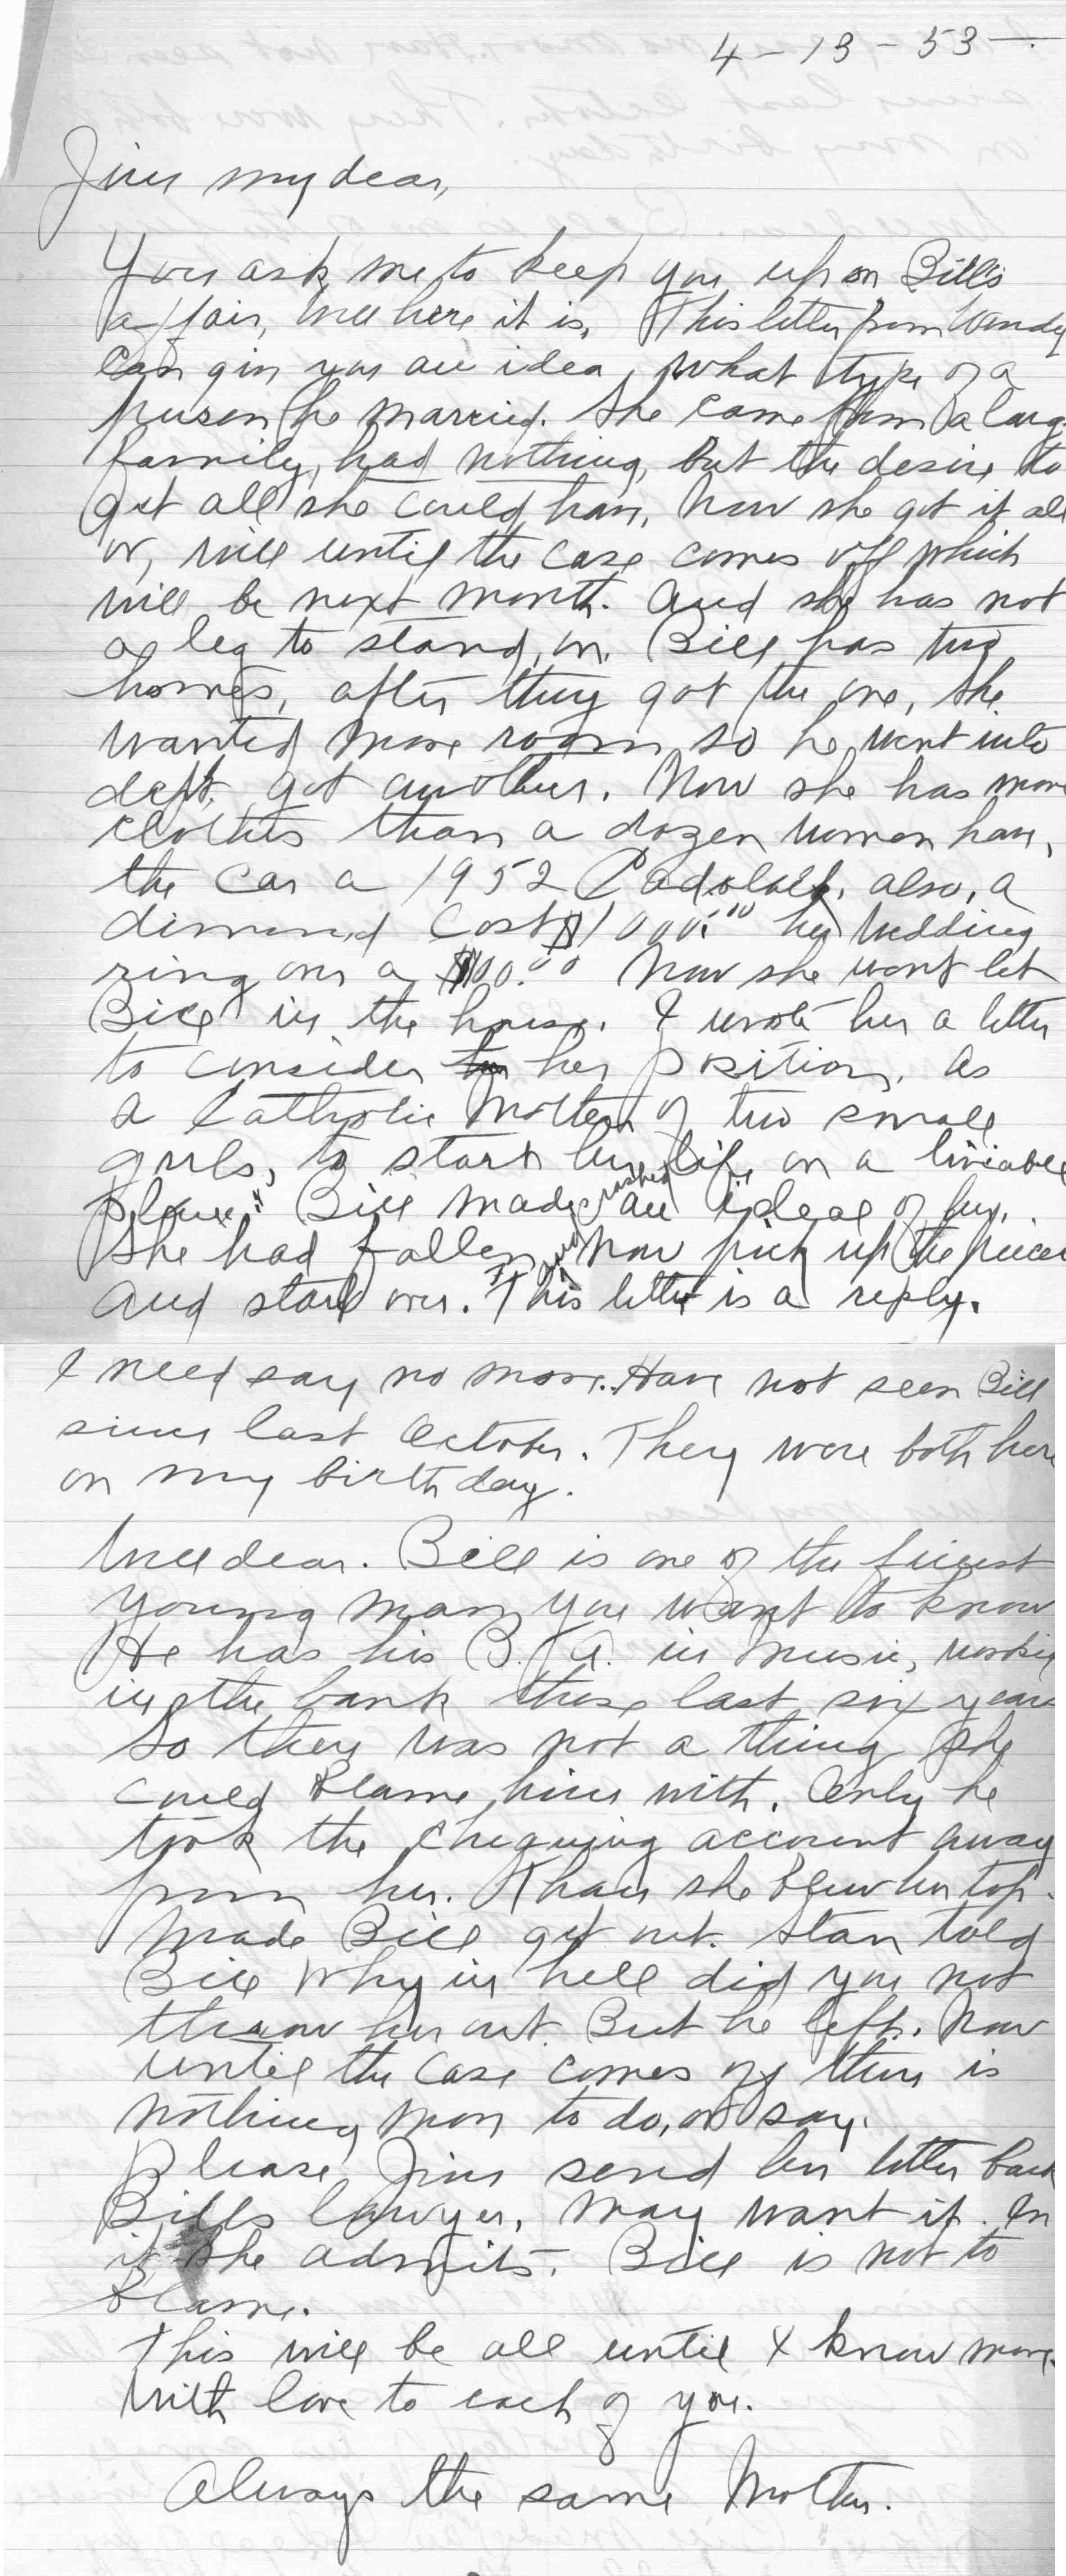 4-13-53
Jim my dear,
You ask me to keep you up on Bill's
affair, well here it is, This letter from Wendy
can give you an idea, what type of a
person he married. She came from a large
family, had nothing, but the desire to
get all she could have, Now she got it all
or, will until the case comes off which
will be next month. And she has not
a leg to stand on. Bill has two
homes, after they got the one, she
wanted more room, so he went into
dept. got another. Now she has more
clothes than a dozen women have,
the car a 1952 Cadolack, also, a
dimond cost $1000.00 her wedding
ring over a $100.00 Now she wont let
Bill in the house. I wrote her a letter
to consider her position, as
a Catholic Mother of two small
girls, to start her life on a liveable
plane." Bill made an ideal of her,
She had fallen and crashed Now pick up the pieces
And start over." This letter is a reply.
I need say no more. Have not seen Bill
since last October. They were both here
on my birthday.
Well dear. Bill is one of the finest
young man you want to know
He has his B. A. in Music, workin
in the bank these last six years
So there was not a thing she
could blame him with. Only he
took the chequing account away
from her. Than she blew her top.
Made Bill get out. Stan told
Bill why in hell did you not
throw her out. But he left. Now
until the case comes off there is
nothing more to do, or say.
Please, Jim send her letter back
Bills lawyer, may want it. In
it she admits. Bill is not to
blame.
This will be all until I know more.
With love to each of you.
Always the same Mother.